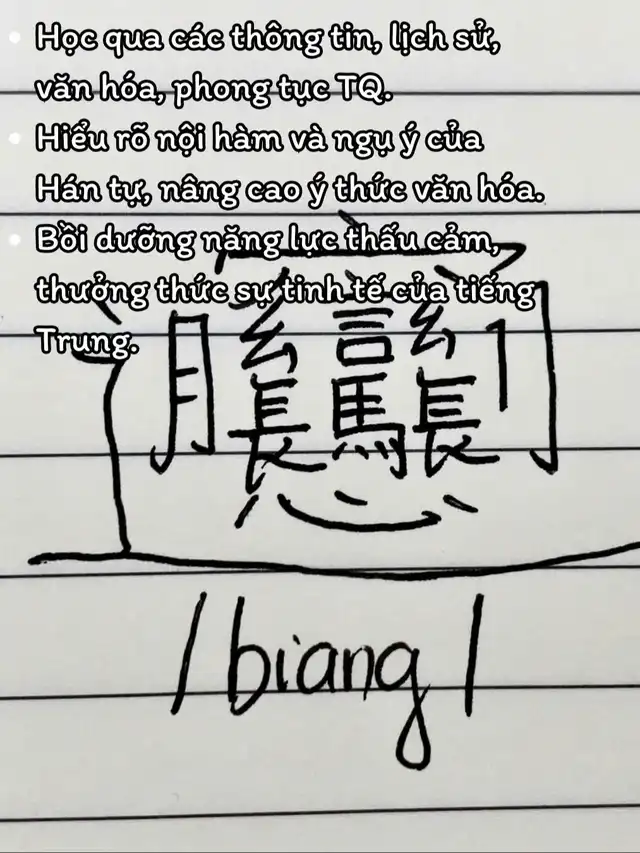 • Học qua các thông tin, lịch sử,
văn hóa, phong tục TQ.
• Hiểu rõ nội hàm và ngụ ý của
Hán tự, nâng cao ý thức văn hóa.
• Bồi dưỡng năng lực thấu cảm,
thưởng thức sự tinh tế của tiếng
Trung.
𰻞
/biang/